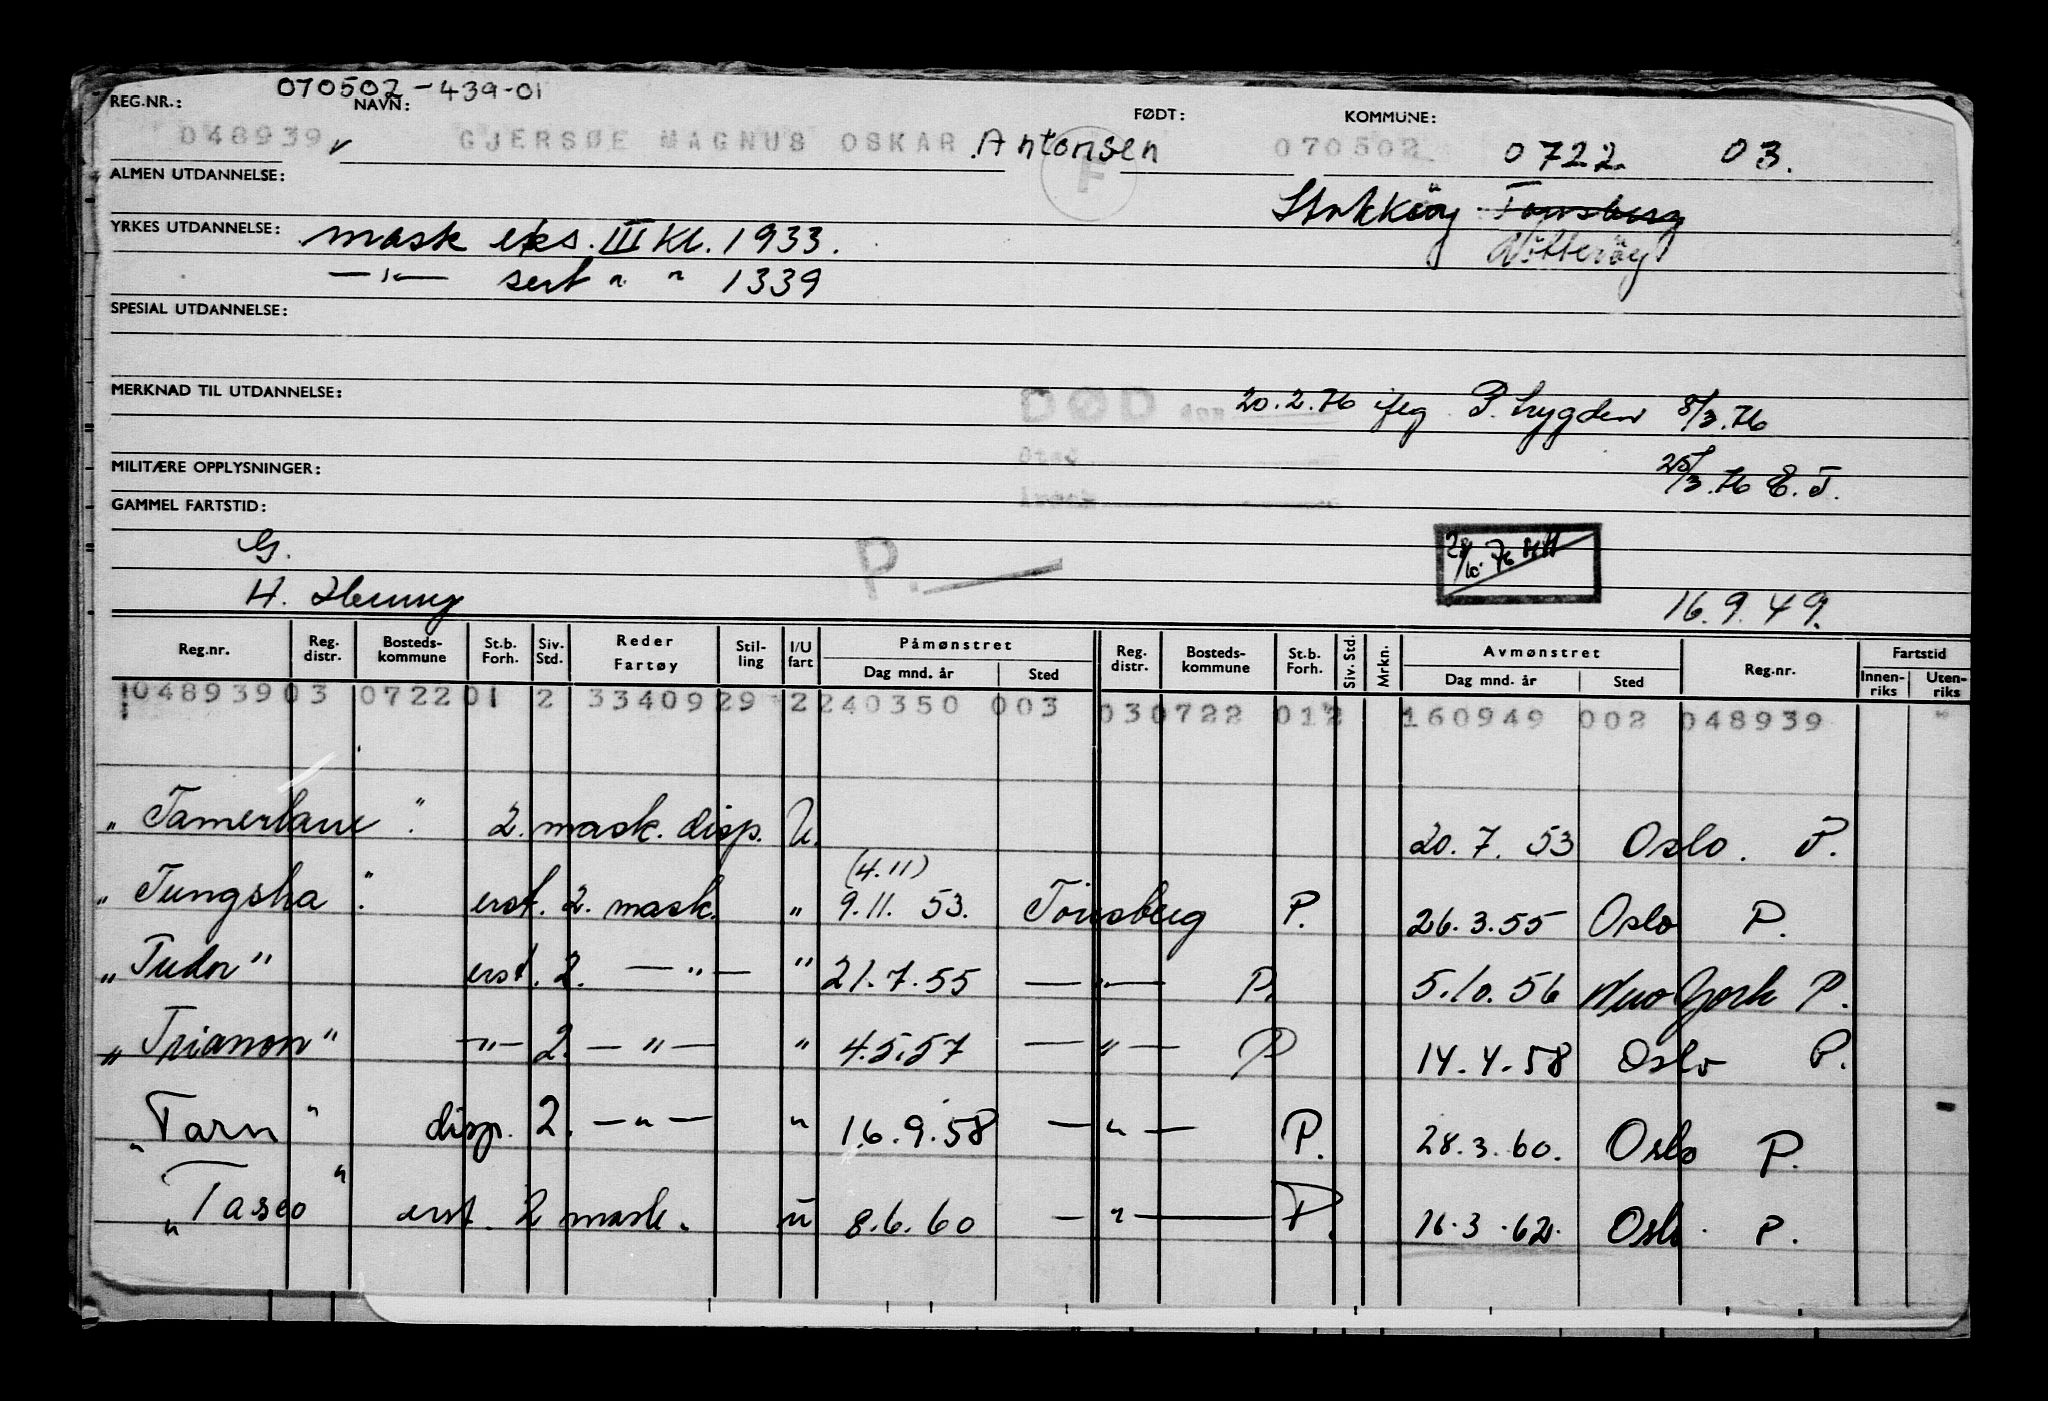 070502-439-01
REG.NR.: NAVN: FØDT: KOMMUNE:
048939 v GJERSØE MAGNUS OSKAR Antonsen F 070502 0722 03.
ALMEN UTDANNELSE:
Stokköy Tönsberg
YRKES UTDANNELSE: mask eks. III Kl. 1933. Nötteröy
—"— sert " " 1339
SPESIAL UTDANNELSE:
MERKNAD TIL UTDANNELSE: DØD den 20.2.76 P. Lygden 8/3.76
Sted
MILITÆRE OPPLYSNINGER: 25/3.76 E.T.
GAMMEL FARTSTID:
G. P. 28/10.76
H. 16.9.49.
Reg.nr. Reg. distr. Bosteds-kommune St.b. Forh. Siv. Std. Reder Fartøy Stil-ling I/U fart Påmønstret Dag mnd. år Sted Reg. distr. Bosteds-kommune St.b. Forh. Siv. Std. Mrkn. Avmønstret Dag mnd. år Sted Reg.nr. Fartstid Innen-riks Uten-riks
048939 03 0722 01 2 33409 29 2 240350 003 03 0722 01 2 160949 002 048939
"Tamerlane" 2. mask. disp. U. 20.7.53 Oslo. P.
(4.11)
"Tungsha" erst. 2. mask. " 9.11.53. Tönsberg P. 26.3.55 Oslo P.
"Tudor" erst. 2. —"— " 21.7.55 —"— P. 5.10.56 New York P.
"Trianon" —"— 2. —"— " 4.5.57 —"— P 14.4.58 Oslo P.
"Tarn" disp. 2. —"— " 16.9.58 —"— P. 28.3.60. Oslo P.
"Tasco" erst. 2 mask. u 8.6.60 —"— P. 16.3.62. Oslo. P.